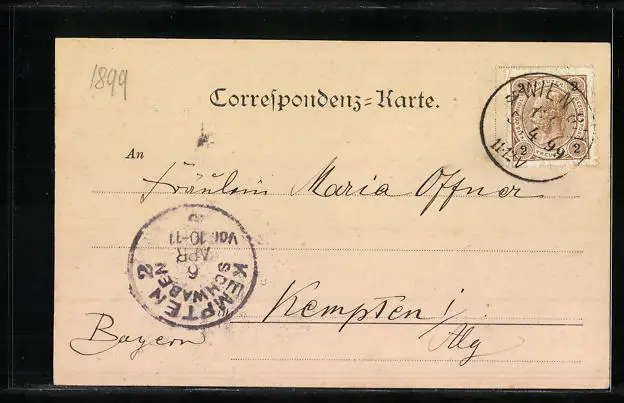 1899
Correspondenz-Karte.
WIEN
4 99
2 2
2 2
An
Fräulein Maria Offner
KEMPTEN 2
SCHWABEN
6
APR
Vor. 10-11
Kempten i/
Alg
Bayern